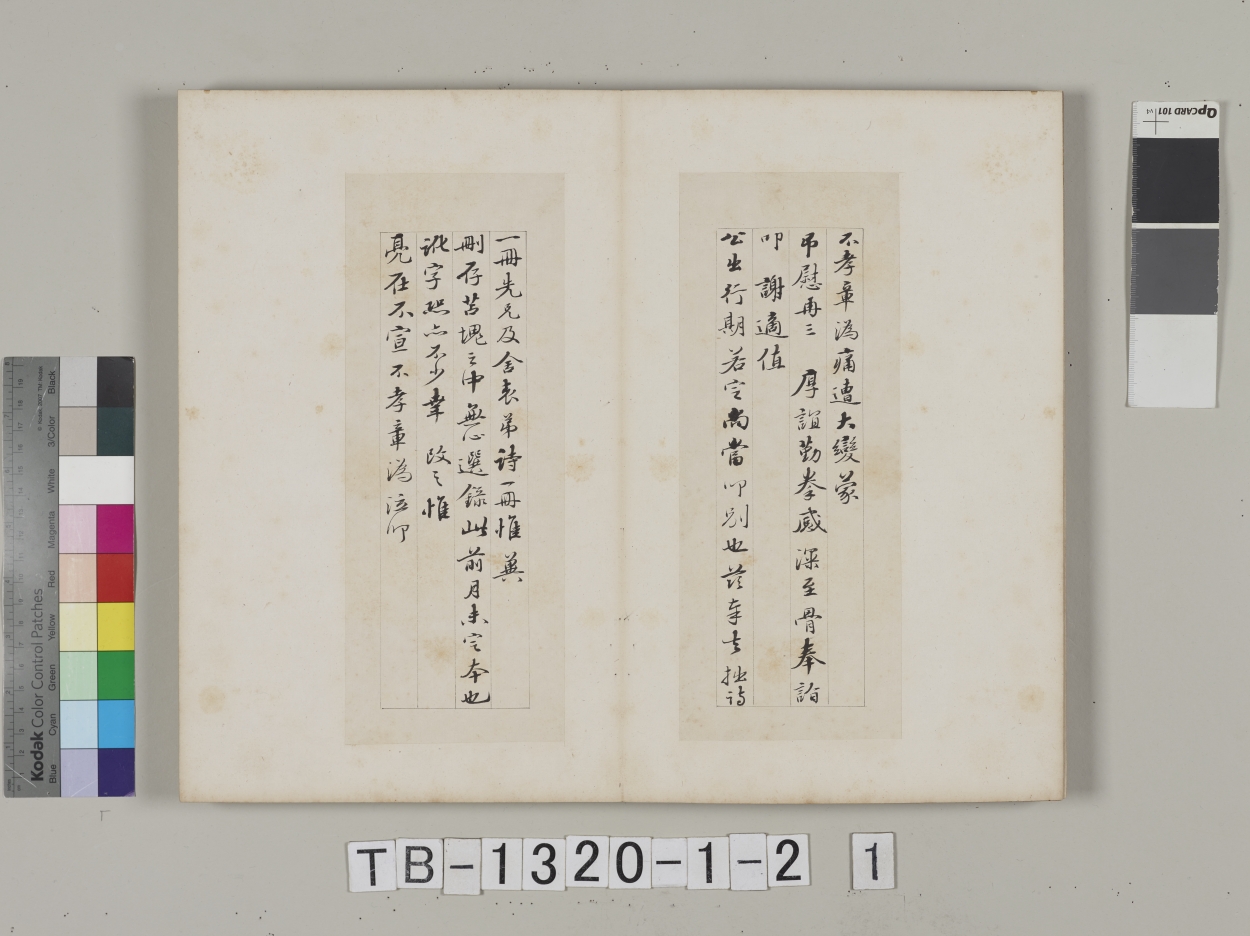 不孝章溈痛遭大變蒙
弔慰再三 厚誼勤拳感深至骨奉詣
叩 謝適值
公出行期若定尚當叩別也茲奉去拙詩
一冊先兄及舍表弟詩一冊惟 冀
刪存苫塊之中無心選錄此前月未定本也
訛字照亦不少幸 改之惟
亮在不宣不孝章溈泣叩
QpCARD 101
Kodak Color Control Patches
© Kodak
Black
3/Color
White
Magenta
Red
Yellow
Green
Cyan
Blue
TB-1320-1-2 1